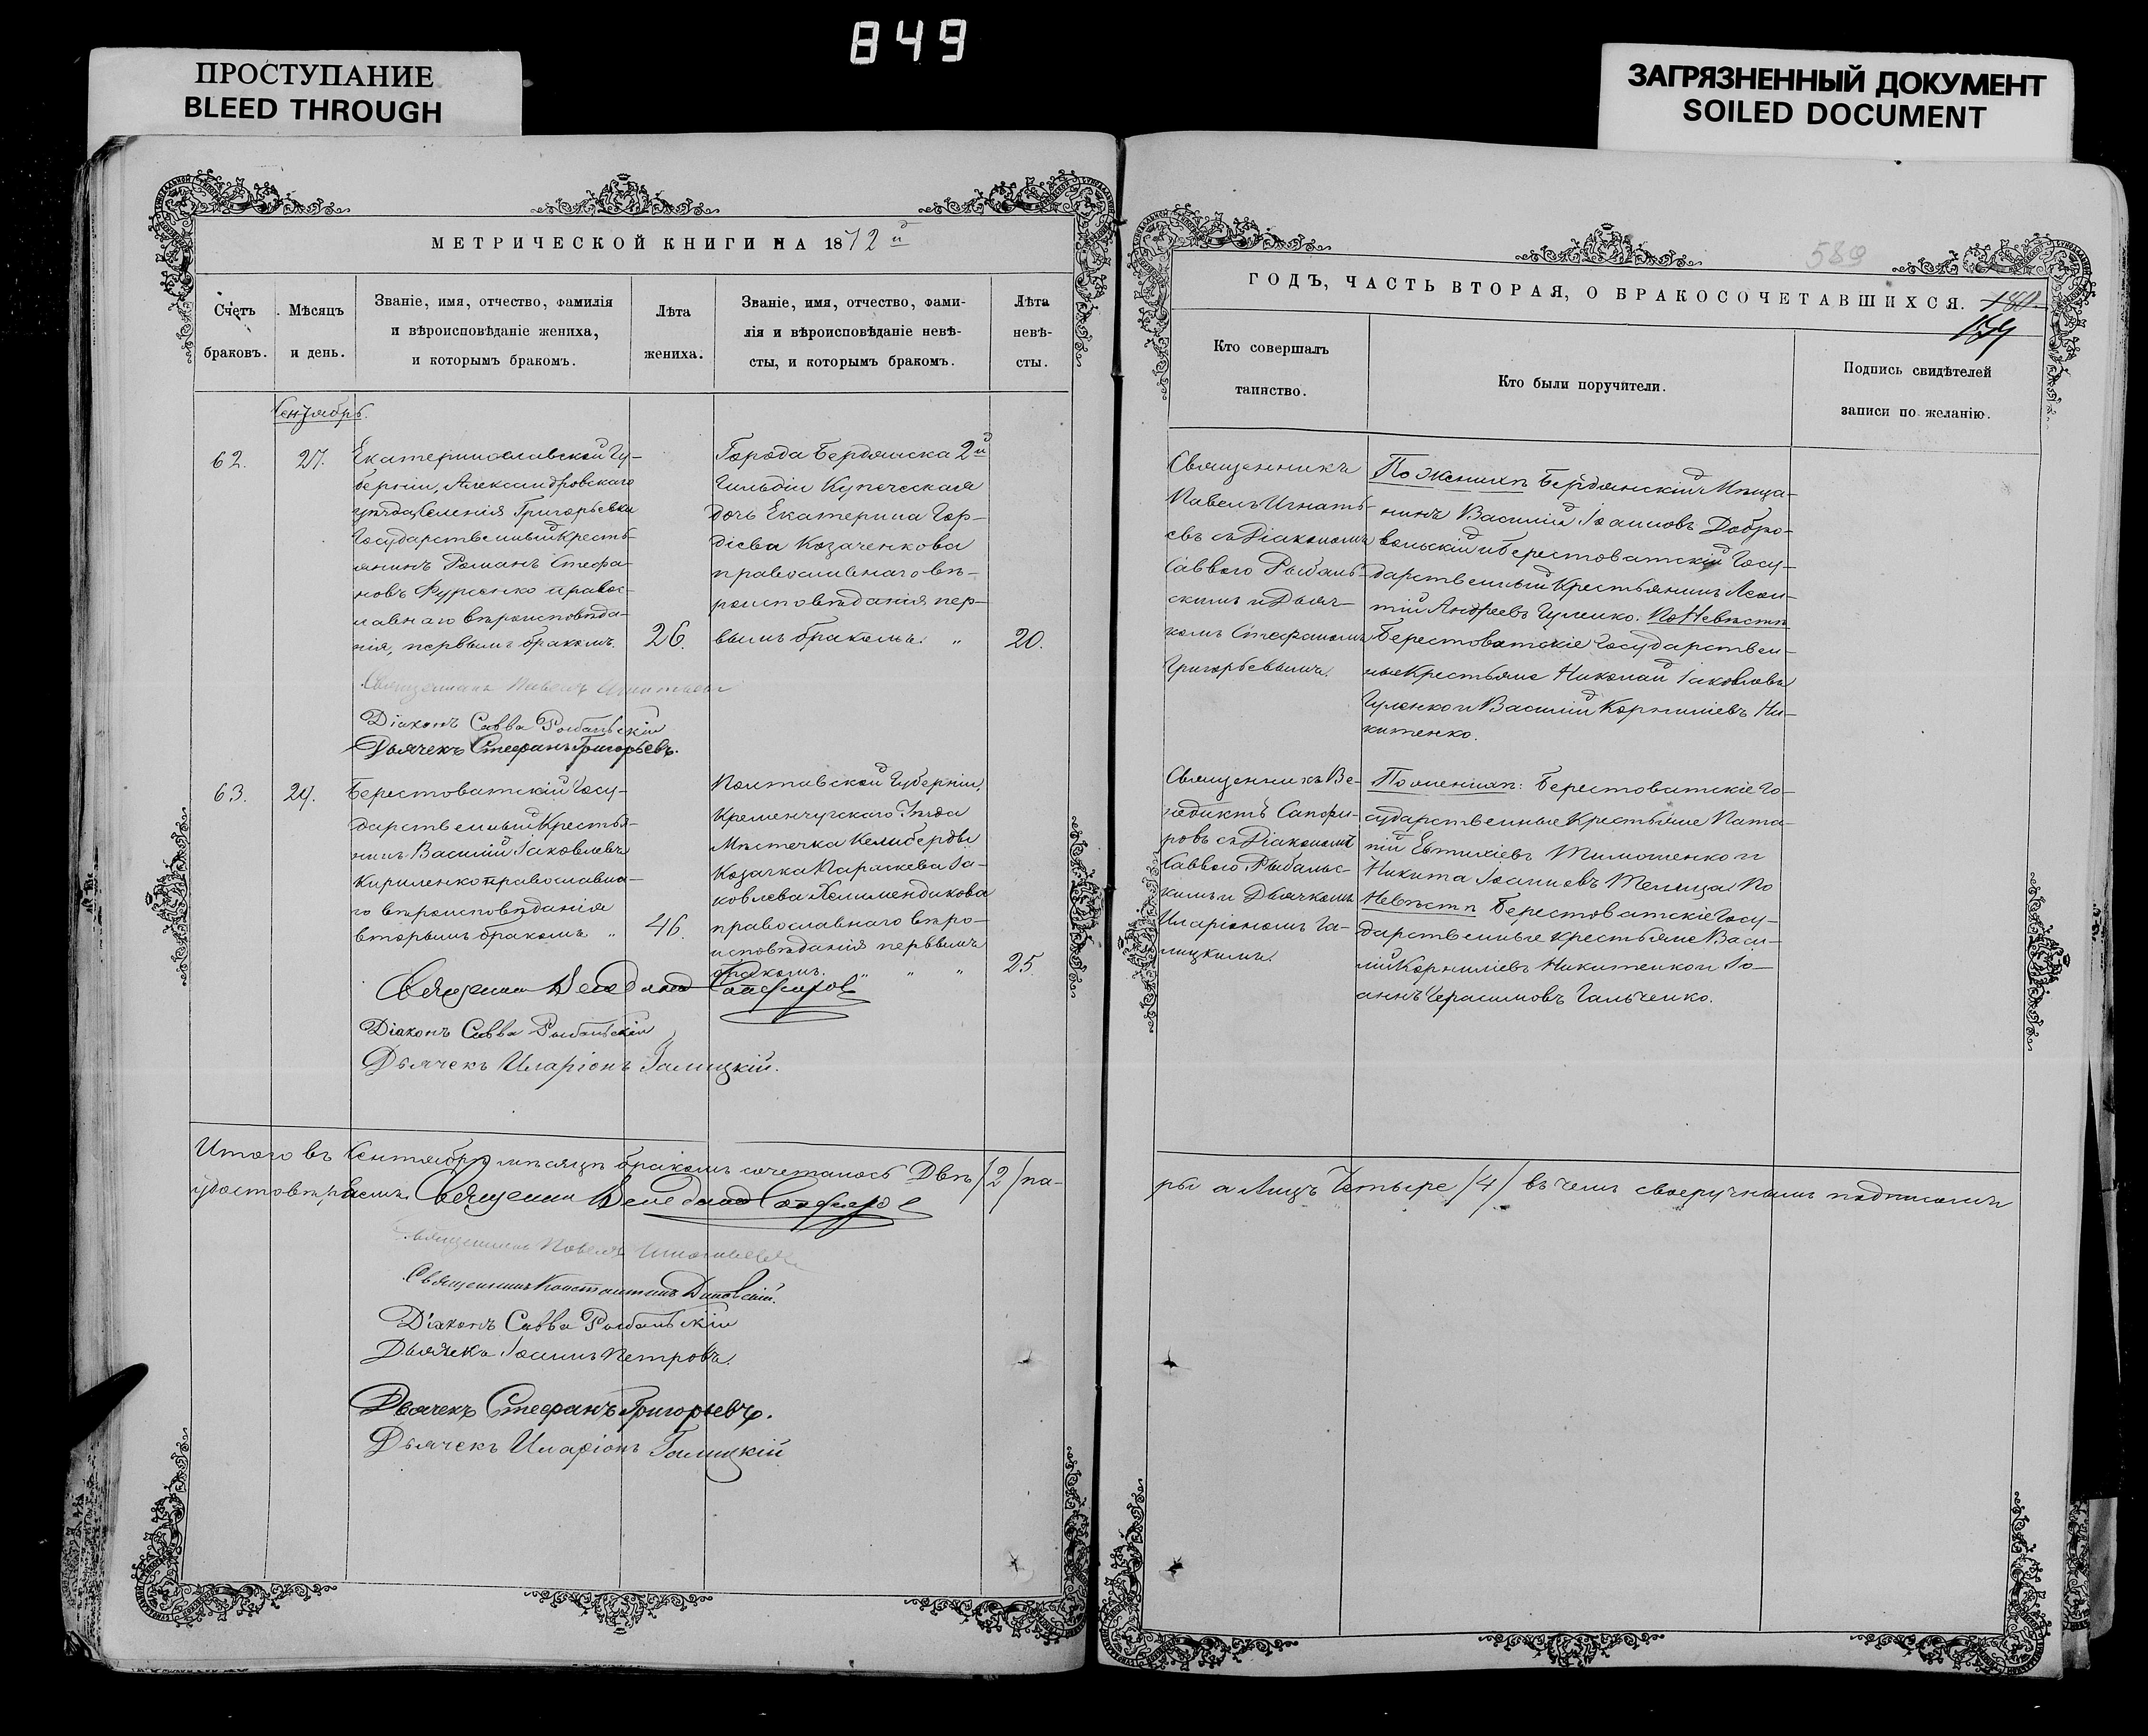 849
ПРОСТУПАНИЕ
BLEED THROUGH
ЗАГРЯЗНЕННЫЙ ДОКУМЕНТ
SOILED DOCUMENT
МЕТРИЧЕСКОЙ КНИГИ НА 1872й
Счетъ браковъ.
Мѣсяцъ и день.
Званіе, имя, отчество, фамилія
и вѣроисповѣданіе жениха,
и которымъ бракомъ.
Лѣта жениха.
Званіе, имя, отчество, фами-
лія и вѣроисповѣданіе невѣ-
сты, и которымъ бракомъ.
Лѣта невѣ-
сты.
Сентябрь.
62.
27.
Екатеринославской Гу-
берніи, Александровскаго
уѣзда, Селенія Григорьевки
Государственный Кресть-
янинъ Романъ Стефа-
новъ Фурсенко правос-
лавнаго вѣроисповѣда-
нія, первымъ бракомъ.
26.
Города Бердянска 2й
Гильдіи Купеческая
дочь Екатерина Гор-
діева Козаченкова
православнаго вѣ-
роисповѣданія пер-
вымъ бракомъ. "
20.
Священникъ Павелъ Игнатьевъ
Діаконъ Савва Рыбальскій
Дьячекъ Стефанъ Григорьевъ.
63.
29.
Берестоватскій Госу-
дарственный Крестья-
нинъ Василій Іаковлевъ
Кириленко православна-
го вѣроисповѣданія
вторымъ бракомъ "
46.
Полтавской Губерніи,
Кременчугскаго Уѣзда
Мѣстечка Келиберды
Козачка Параскева Іа-
ковлева Хелимендикова
православнаго вѣро-
исповѣданія первымъ
бракомъ. " " "
25.
Священникъ Венедиктъ Сапфировъ
Діаконъ Савва Рыбальскій
Дьячекъ Иларіонъ Галицкій.
Итого въ Сентябрѣ мѣсяцѣ бракомъ сочеталось Двѣ /2/ па-
удостовѣряемъ. Священникъ Венедиктъ Сапфировъ
Священникъ Павелъ Игнатьевъ
Священникъ Константинъ
Діаконъ Савва Рыбальскій
Дьячекъ Іоаннъ Петровъ.
Дьячекъ Стефанъ Григорьевъ.
Дьячекъ Иларіонъ Галицкій
589
ГОДЪ, ЧАСТЬ ВТОРАЯ, О БРАКОСОЧЕТАВШИХСЯ. 180.
179
Кто совершалъ
таинство.
Кто были поручители.
Подпись свидѣтелей
записи по желанію.
Священникъ
Павелъ Игнать-
евъ съ Діакономъ
Саввою Рыбаль-
скимъ и Дьяч-
комъ Стефаномъ
Григорьевымъ.
По Женихѣ Бердянскій Мѣща-
нинъ Василій Іоанновъ Добро-
вольскій и Берестоватскій Госу-
дарственный Крестьянинъ Леон-
тій Андреевъ Гуленко. По Невѣстѣ
Берестоватскіе Государствен-
ные Крестьяне Николай Іаковлевъ
Гуленко и Василій Корниліевъ Ни-
китенко.
Священникъ Ве-
недиктъ Сапфи-
ровъ съ Діакономъ
Саввою Рыбальс-
кимъ и Дьячкомъ
Иларіономъ Га-
лицкимъ.
По женихѣ: Берестоватскіе Го-
сударственные Крестьяне Пата-
пій Евтихіевъ Тимошенко и
Никита Іоанновъ Телица По
Невѣстѣ Берестоватскіе Госу-
дарственные крестьяне Васи-
лій Корниліевъ Никитенко и Іо-
аннъ Герасимовъ Гальченко.
ры а Лицъ Четыре /4/ въ чемъ своеручнымъ подписомъ